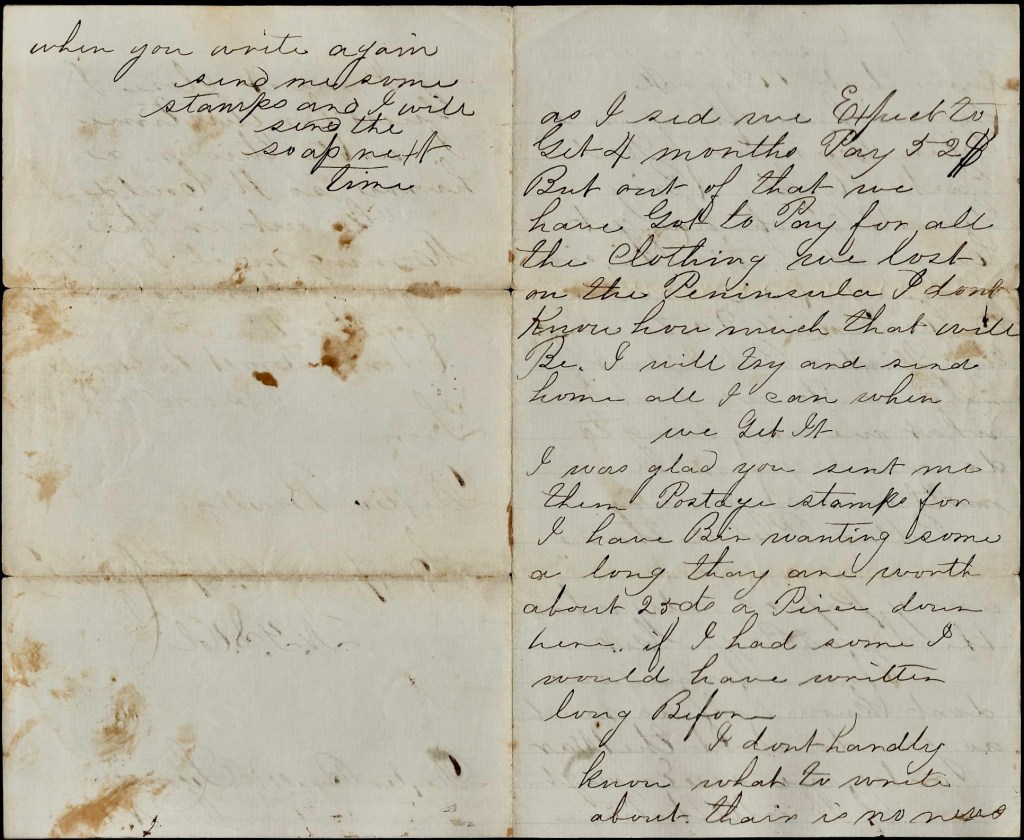 when you write again
send me some
stamps and I will
send the
soap next
time
as I sed we Expect to
Get 4 months Pay 52$
But out of that we
have Got to Pay for all
the Clothing we lost
on the Peninsula I dont
Know how much that will
Be. I will try and send
home all I can when
we Get It
I was glad you sent me
them Postage stamps for
I have Bin wanting some
a long thay are worth
about 25cts a Piece down
here. if I had some I
would have written
long Before
I dont hardly
know what to write
about thair is no news